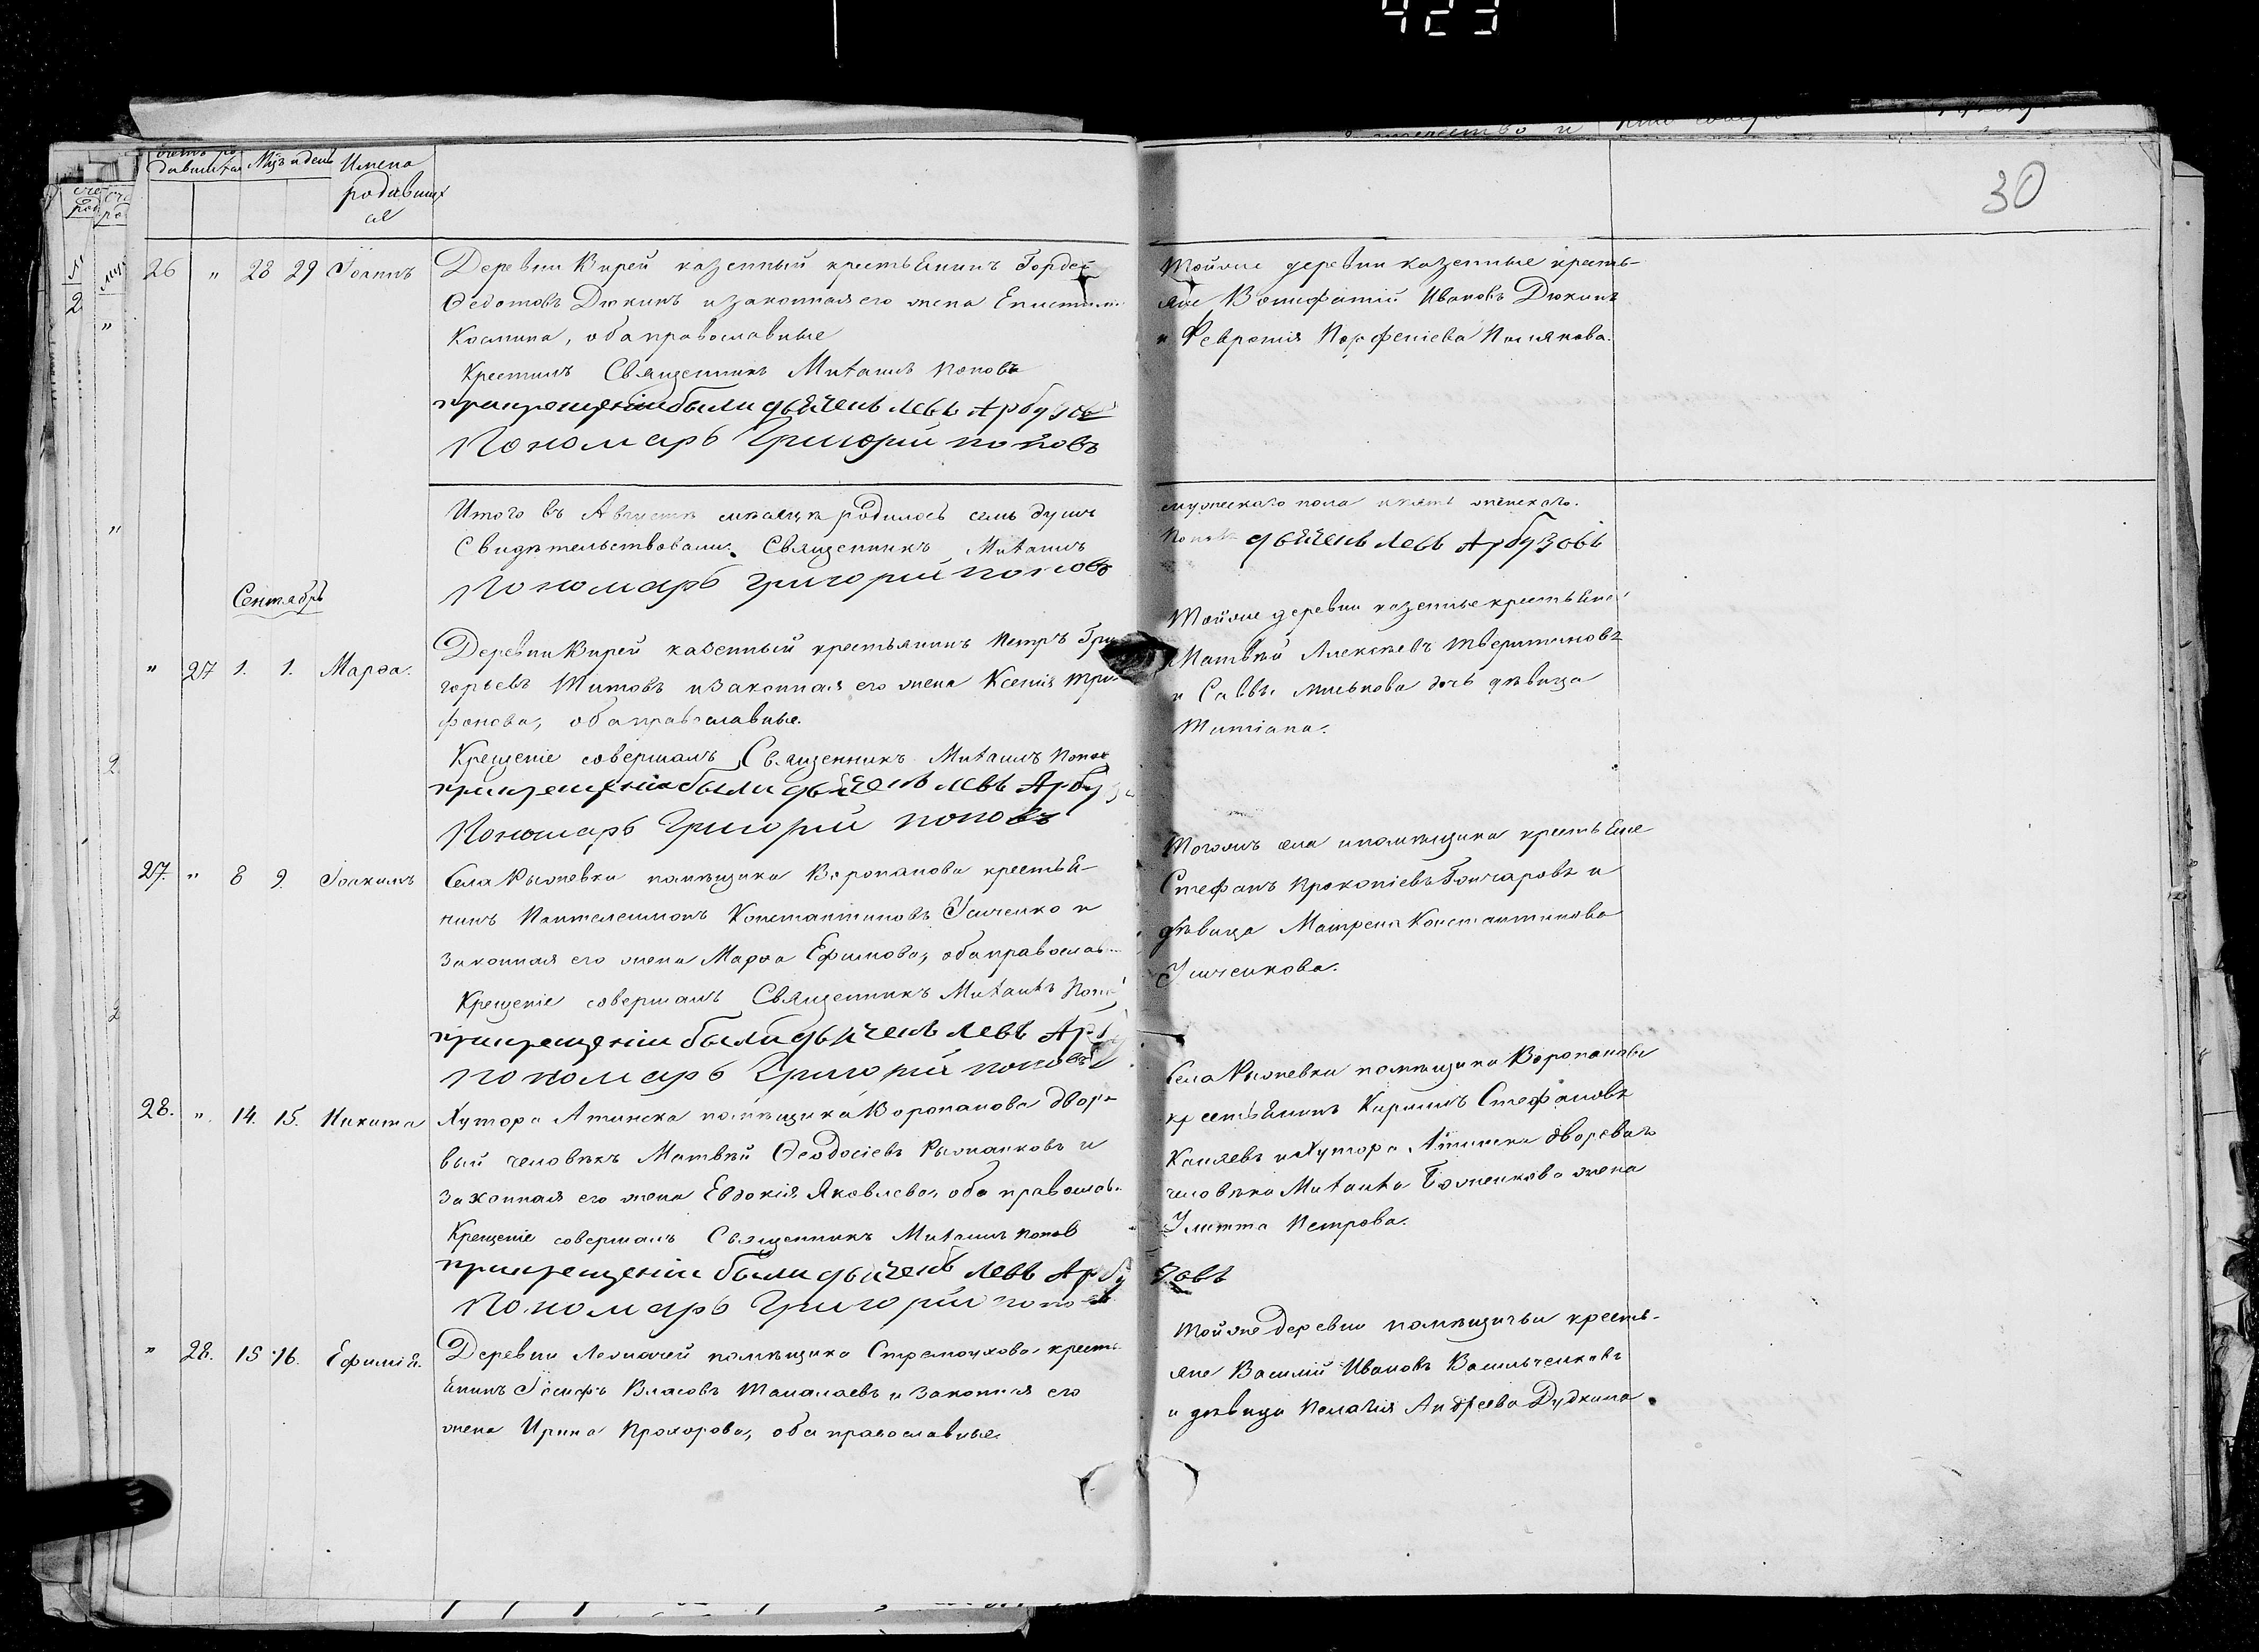 423
30
Счетъ ро
дившихся
Мѣц. и день
Имена
родивших
ся
26 " 28 29 Іоаннъ
Деревни Вирей казенный крестьянинъ Гордей
Ѳедотовъ Дюкинъ и законная его жена Епистим
Космина, оба православные
Крестилъ Священникъ Михаилъ Поповъ
при крещеніи были дьячекъ Левъ Арбузовъ
Пономарь Григорій Поповъ
Тойже деревни казенные кресть-
яне Вонифатій Ивановъ Дюкинъ
и Февронія Парфеніева
Итого въ Августѣ мѣсяцѣ родилось семь душъ
мужескаго пола и пять женскаго.
Свидѣтельствовали: Священникъ Михаилъ
Поповъ дьячекъ Левъ Арбузовъ
Пономарь Григорій Поповъ
Сентябрь
" 27 1. 1. Марѳа.
Деревни Вирей казенный крестьянинъ Петръ Гри
горьевъ Титовъ и законная его жена Ксенія Три-
фонова, оба православные.
Крещеніе совершалъ Священникъ Михаилъ Попов
при крещеніи были дьячекъ Левъ Арбузо
Пономарь Григорій Поповъ
Тойже деревни казенные крестьяне
Матвѣй Алексѣевъ Тверитиновъ
и Саввы дочь дѣвица
Татіана.
27. " 8 9. Іоакимъ
Села Рыжевки помѣщика Воропанова крестья-
нинъ Пантелеимонъ Константиновъ и
законная его жена Марѳа Ефимова, оба православ
Крещеніе совершалъ Священникъ Михаилъ Попов
при крещеніи были дьячекъ Левъ Арбу
Пономарь Григорій Поповъ
Тогожъ села и помѣщика крестьяне
Стефанъ Прокопіевъ Гончаровъ и
дѣвица Матрена Константинова
28. " 14. 15. Никита
Хутора Атинска помѣщика Воропанова дворо
вый человѣкъ Матвѣй Ѳеодосіевъ и
законная его жена Евдокія Яковлева, оба православ.
Крещеніе совершалъ Священникъ Михаилъ Попов
при крещеніи были дьячекъ Левъ Арбу
зовъ
Пономарь Григорій Поповъ
Села Рыжевки помѣщика Воропанова
крестьянинъ Кириллъ Стефановъ
и Хутора Атинска двороваго
человѣка Михаила Боженкова жена
Улитта Петрова.
" 28. 15 16. Ефимія.
Деревни помѣщика Стремоухова кресть
янинъ Іосифъ Власовъ и законная его
жена Ирина Прохорова, оба православные
Тойже деревни помѣщичьи кресть-
яне Василій Ивановъ Васильченковъ
и дѣвица Пелагія Андреева Дудкина.